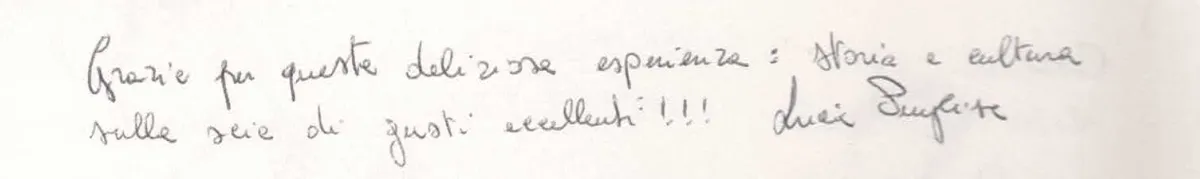 Grazie per questa deliziosa esperienza: storia e cultura
sulla scia di gusti eccellenti!!! Lucia